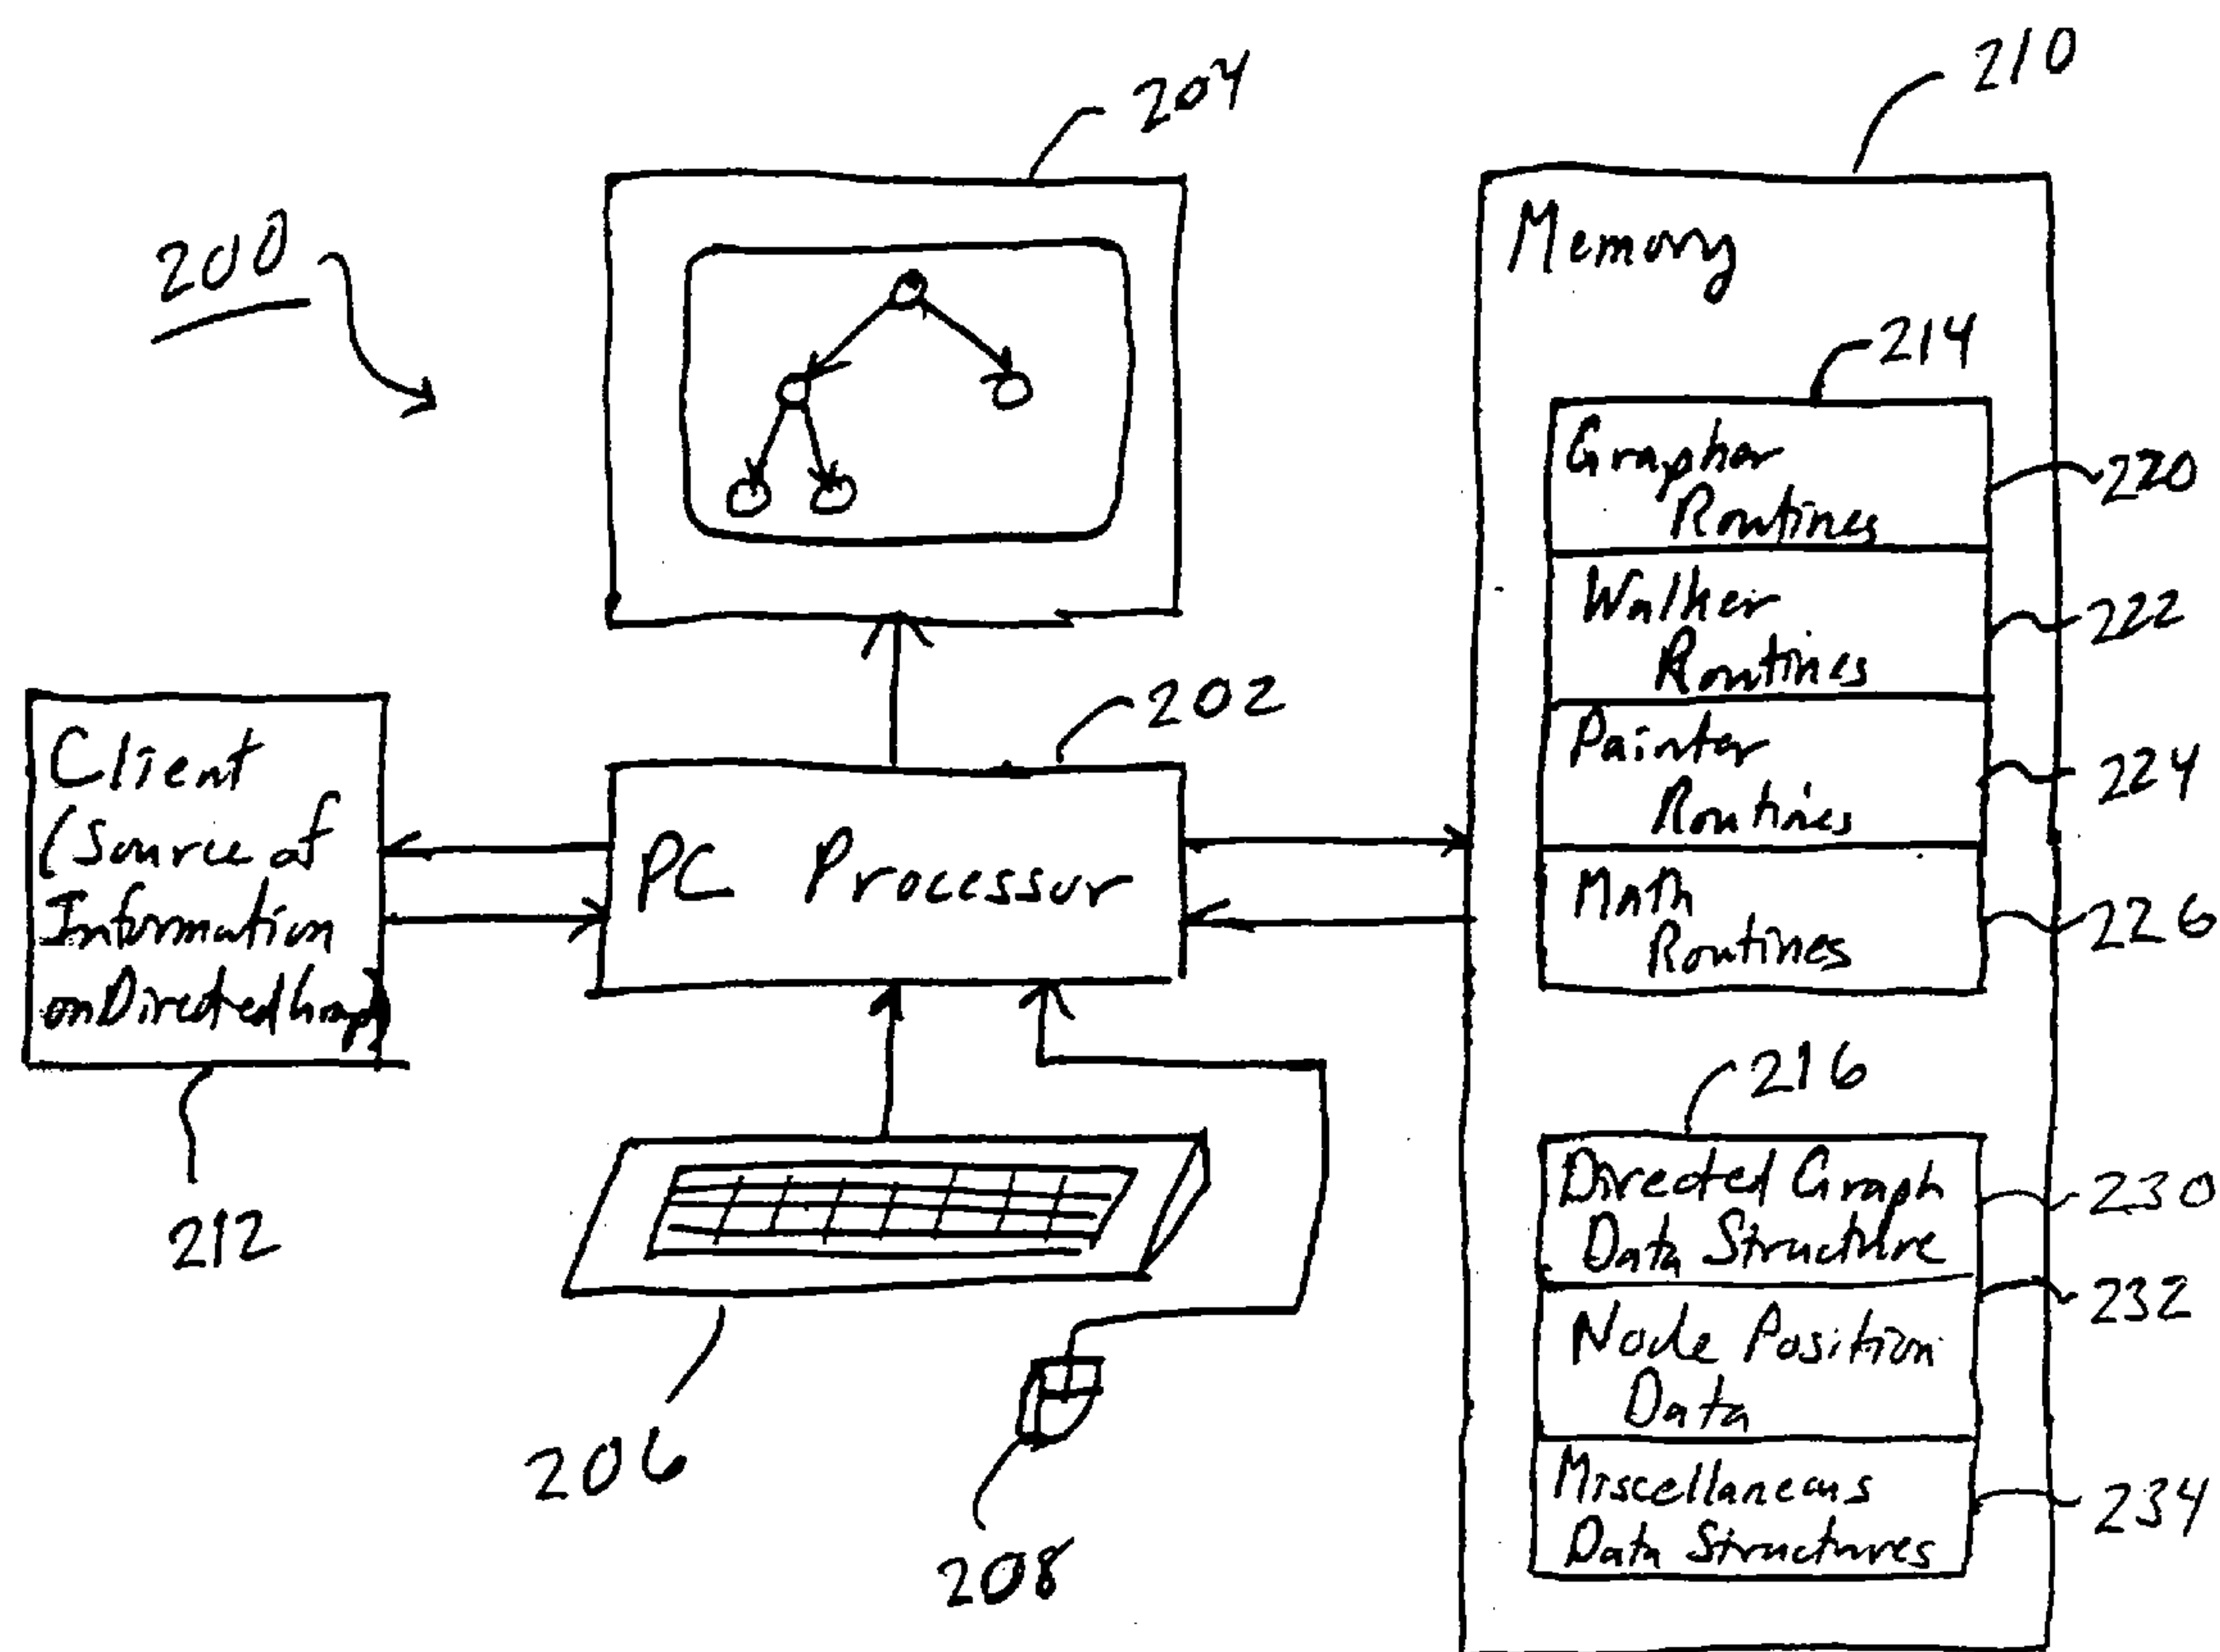 204
210
200
Memory
214
Grapher
Routines
220
Walker
Routines
222
Painter
Routines
224
Math
Routines
226
202
PC Processor
Client
(Source of
Information
on Directed Graph)
212
206
208
216
Directed Graph
Data Structure
230
232
Node Position
Data
Miscellaneous
Data Structures
234